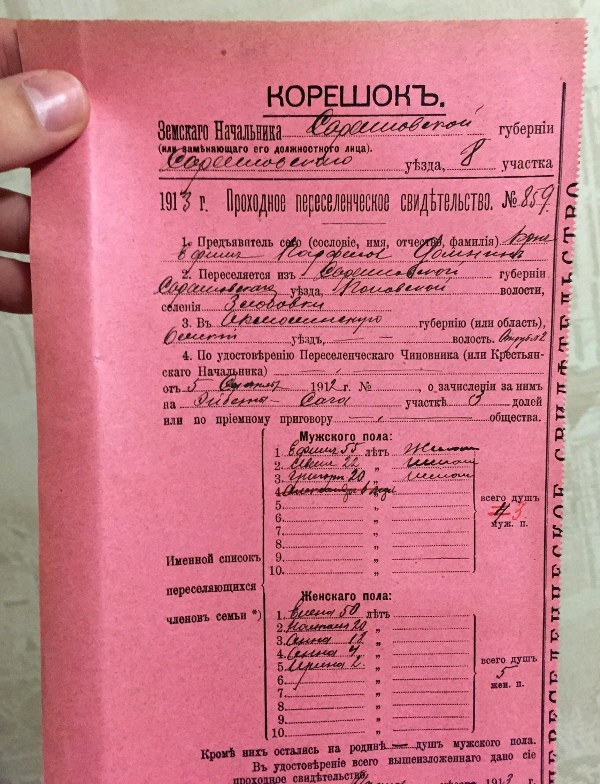 КОРЕШОКЪ.
Земскаго Начальника Саратовской губерніи
(или замѣняющаго его должностного лица).
Саратовскаго уѣзда, 8 участка
1913 г. Проходное переселенческое свидѣтельство. № 859.
1. Предъяватель сего (сословіе, имя, отчество, фамилія)
Ефимъ
2. Переселяется изъ Саратовской губерніи
Саратовскаго уѣзда, Поповской волости,
селенія
3. Въ губернію (или область),
уѣздъ, — волость.
4. По удостовѣренію Переселенческаго Чиновника (или Крестьян-
скаго Начальника)
отъ 5 1912 г. № , о зачисленіи за нимъ
на участкѣ 3 долей
или по пріемному приговору общества.
Мужского пола:
1. Ефимъ 55 лѣтъ
2. 22 „
3. Григорій 20 „
4. Александръ „
5. „
6. „
7. „
8. „
9. „
10. „
всего душъ
4 3
муж. п.
Именной списокъ
переселяющихся
членовъ семьи *)
Женскаго пола:
1. Елена 50 лѣтъ
2. Наталья 20 „
3. Анна 13 „
4. Анна 4 „
5. Ирина 2 „
6. „
7. „
8. „
9. „
10. „
всего душъ
5
жен. п.
Кромѣ нихъ остались на родинѣ — душъ мужского пола.
Въ удостовѣреніе всего вышеизложеннаго дано сіе
проходное свидѣтельство 1913 г.
ПЕРЕСЕЛЕНЧЕСКОЕ СВИДѢТЕЛЬСТВО